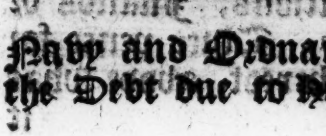 Navy and Ordna
the Debt due to